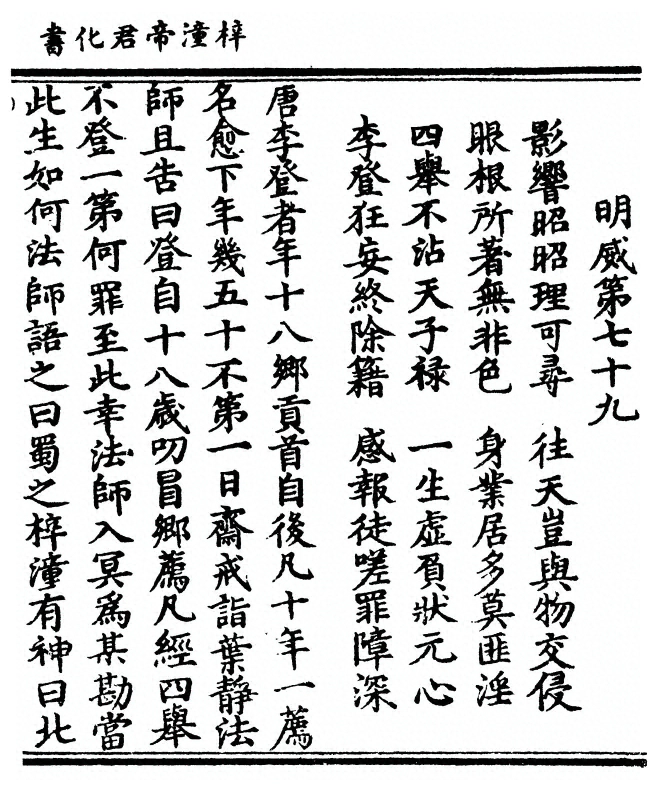 梓潼帝君化書
明威第七十九
影響昭昭理可尋 往天豈與物交侵
眼根所著無非色 身業居多莫匪淫
四舉不沾天子祿 一生虛負狀元心
李登狂妄終除籍 感報徒嗟罪障深
唐李登者年十八鄉貢首自後凡十年一薦
名愈下年幾五十不第一日齋戒詣葉靜法
師且告曰登自十八歲叨冒鄉薦凡經四舉
不登一第何罪至此幸法師入冥為某勘當
此生如何法師語之曰蜀之梓潼有神曰北